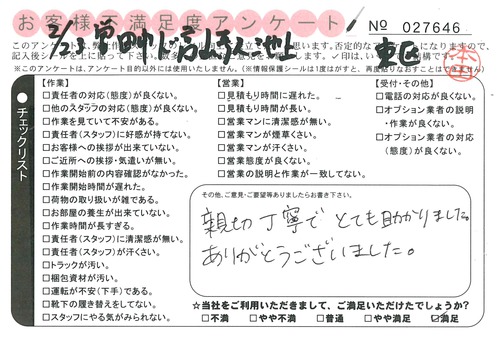 お客様不満足度アンケート
No 027646
東区
※このアンケートは、アンケート目的以外には使用いたしません。
チェックリスト
【作業】
□責任者の対応(態度)が良くない。
□他のスタッフの対応(態度)が良くない。
□作業を見ていて不安がある。
□責任者(スタッフ)に好感が持てない。
□お客様への挨拶が出来ていない。
□ご近所への挨拶・気遣いが無い。
□作業開始前の内容確認がなかった。
□作業開始時間が遅れた。
□荷物の取り扱いが雑である。
□お部屋の養生が出来ていない。
□作業時間が長すぎる。
□責任者(スタッフ)に清潔感が無い。
□責任者(スタッフ)が汗くさい。
□トラックが汚い。
□梱包資材が汚い。
□運転が不安(下手)である。
□靴下の履き替えをしてない。
□スタッフにやる気がみられない。
【営業】
□見積もり時間に遅れた。
□見積もり時間が長い。
□営業マンに清潔感が無い。
□営業マンが煙草くさい。
□営業マンが汗くさい。
□営業態度が良くない。
□営業の説明と作業が一致してない。
【受付・その他】
□電話の対応が良くない。
□オプション業者の説明
・作業が良くない。
□オプション業者の対応
(態度)が良くない。
その他、ご意見・ご要望等ありましたらお書き下さい。
親切丁寧で とても助かりました。
ありがとうございました。
☆当社をご利用いただきまして、ご満足いただけたでしょうか?
□不満 □やや不満 □普通 □やや満足 ☑満足